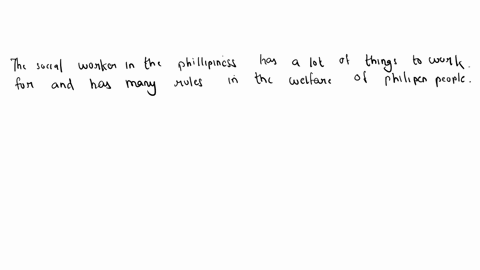 The social worker in the phillipiness has a lot of things to work.
for and has many rules in the welfare of philipen people.